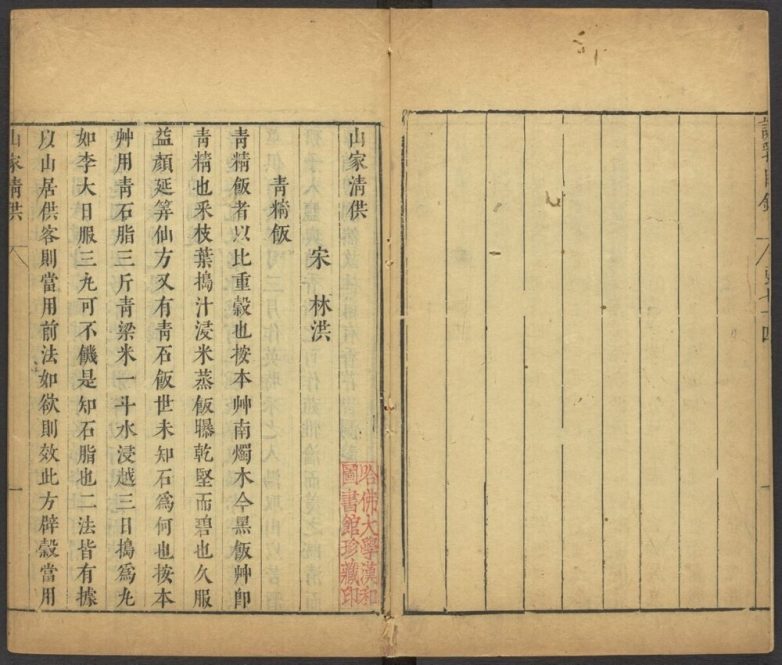 山家清供
宋 林洪
青精飯
青精飯者以此重穀也按本艸南燭木今黑飯艸卽
青精也采枝葉搗汁浸米蒸飯曝乾堅而碧也久服
益顏延筭仙方又有青石飯世未知石爲何也按本
艸用青石脂三斤青梁米一斗水浸越三日搗爲丸
如李大日服三丸可不饑是知石脂也二法皆有據
以山居供客則當用前法如欲則效此方辟穀當用
山家清供 一
哈佛大學漢和
圖書館珍藏印